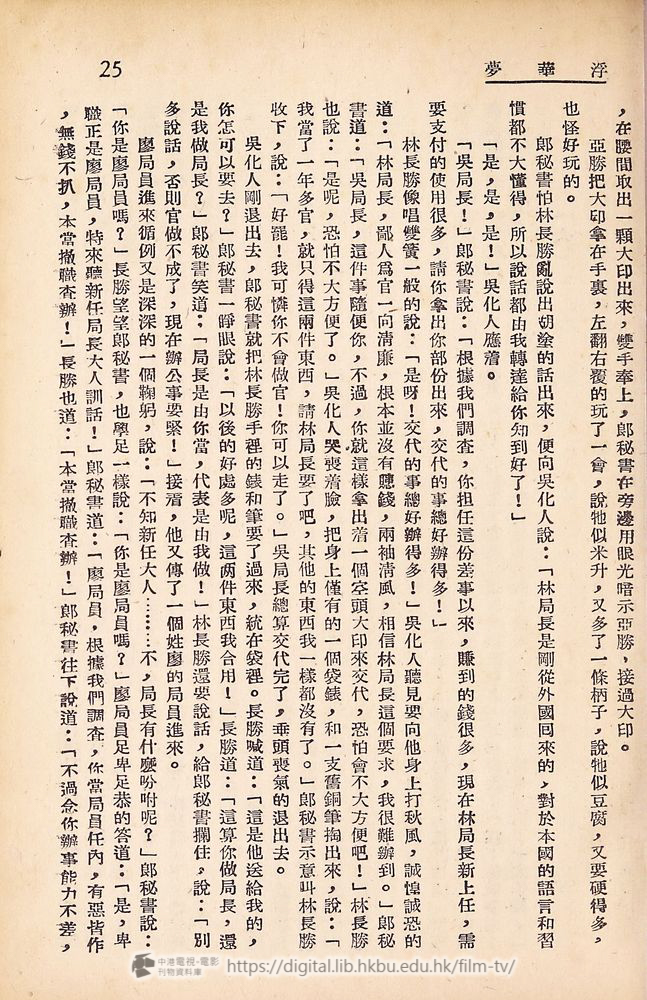 浮華夢
25
，在腰間取出一顆大印出來，雙手奉上，郎秘書在旁邊用眼光暗示亞勝，接過大印。
亞勝把大印拿在手裏，左翻右覆的玩了一會，說牠似米升，又多了一條柄子，說牠似豆腐，又要硬得多，
也怪好玩的。
郎秘書怕林長勝亂說出胡塗的話出來，便向吳化人說：「林局長是剛從外國囘來的，對於本國的語言和習
慣都不大懂得，所以說話都由我轉達給你知到好了！」
「是，是，是！」吳化人應着。
「吳局長！」郎秘書說：「根據我們調查，你担任這份差事以來，賺到的錢很多，現在林局長新上任，需
要支付的使用很多，請你拿出你部份出來，交代的事總好辦得多！」
林長勝像唱雙簧一般的說：「是呀！交代的事總好辦得多！」吳化人聽見要向他身上打秋風，誠惶誠恐的
道：「林局長，鄙人爲官一向清廉，根本並沒有賺錢，兩袖清風，相信林局長這個要求，我很難辦到。」郎秘
書道：「吳局長，這件事隨便你，不過，你就這樣拿出着一個空頭大印來交代，恐怕會不大方便吧！」林長勝
也說：「是呢，恐怕不大方便了。」吳化人哭喪着臉，把身上僅有的一個袋錶，和一支舊鋼筆掏出來，說：「
我當了一年多官，就只得這兩件東西，請林局長要了吧，其他的東西我一樣都沒有了。」郎秘書示意叫林長勝
收下，說：「好罷！我可憐你不會做官！你可以走了。」吳局長總算交代完了，垂頭喪氣的退出去。
吳化人剛退出去，郎秘書就把林長勝手裡的錶和筆要了過來，統在袋裡。長勝喊道：「這是他送給我的，
你怎可以要去？」郎秘書一睜眼說：「以後的好處多呢，這两件東西我合用！」長勝道：「這算你做局長，還
是我做局長？」郎秘書笑道：「局長是由你當，代表是由我做！」林長勝還要說話，給郎秘書攔住，說：「別
多說話，否則官做不成了，現在辦公事要緊！」接着，他又傳了一個姓廖的局員進來。
廖局員進來循例又是深深的一個鞠躬，說：「不知新任大人………不，局長有什麽吩咐呢？」郎秘書說：
「你是廖局員嗎？」長勝望望郎秘書，也學足一樣說：「你是廖局員嗎？」廖局員足卑足恭的答道：「是，卑
職正是廖局員，特來聽新任局長大人訓話！」郎秘書道：「廖局員，根據我們調查，你當局員任內，有惡皆作
，無錢不扒，本當撤職查辦！」長勝也道：「本當撤職查辦！」郎秘書往下說道：「不過念你辦事能力不差，
中港電視·電影
刊物資料庫
https://digital.lib.hkbu.edu.hk/film-tv/